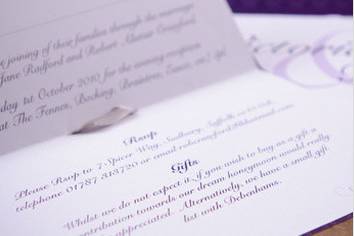 joining of their families through the marriage
Jane Radford and Robert Alistair Crawford
day 1st October 2010 for the evening reception
at The Fennes, Bocking, Braintree, Essex,
Victoria
&
Rsvp
Please Rsvp to 7 Spicer Way, Sudbury, Suffolk,
telephone 01787 313720 or email
Gifts
Whilst we do not expect it, if you wish to buy us a gift a
contribution towards our dream honeymoon would really
appreciated. Alternatively, we have a small gift
list with Debenhams.